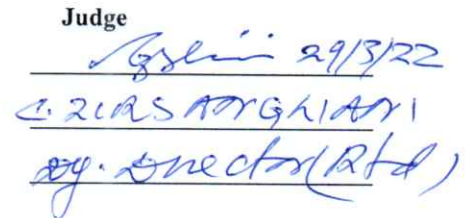 Judge
29/3/22
C. ZIRSANGLIANI
Dy. Director (Rtd)